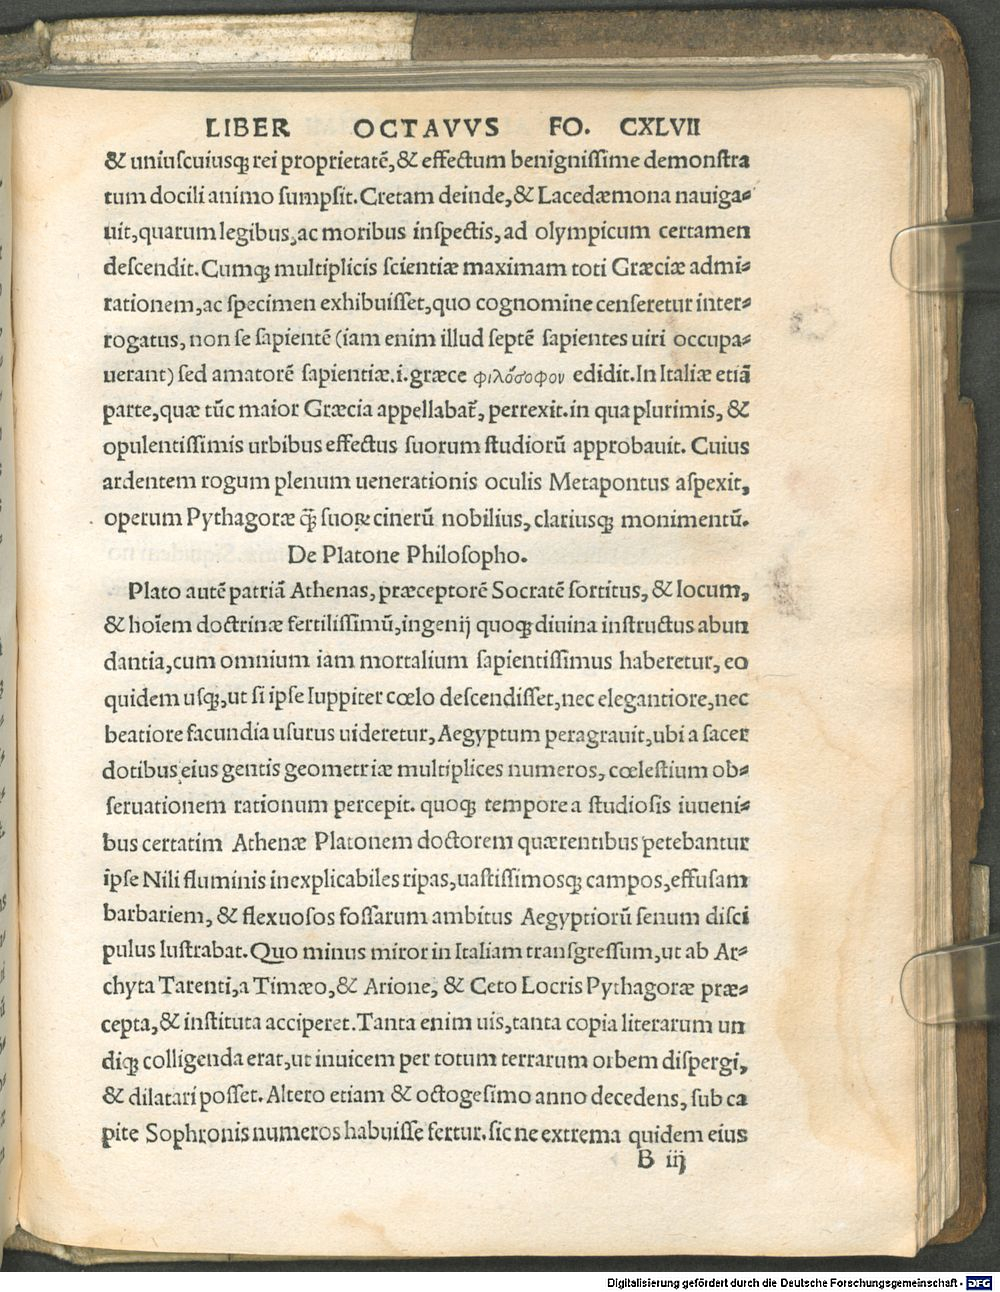 LIBER OCTAVVS FO. CXLVII
& uniuſcuiuſqꝫ rei proprietatē,& effectum benigniſſime demonſtra
tum docili animo ſumpſit. Cretam deinde,& Lacedæmona nauiga⸗
uit,quarum legibus,ac moribus inſpectis,ad olympicum certamen
deſcendit. Cumqꝫ multiplicis ſcientiæ maximam toti Græciæ admi⸗
rationem,ac ſpecimen exhibuiſſet,quo cognomine cenſeretur inter⸗
rogatus, non ſe ſapientē (iam enim illud ſeptē ſapientes uiri occupa⸗
uerant) ſed amatorē ſapientiæ.i.græce φιλόσοφον edidit. In Italiæ etiā
parte,quæ tūc maior Græcia appellabat̃, perrexit.in qua plurimis, &
opulentiſſimis urbibus effectus ſuorum ſtudiorū approbauit. Cuius
ardentem rogum plenum uenerationis oculis Metapontus aſpexit,
operum Pythagoræ q̃ꝫ ſuoꝝ cinerū nobilius, clariuſqꝫ monimentū.
De Platone Philoſopho.
Plato autē patriā Athenas, præceptorē Socratē ſortitus, & locum,
& hoīem doctrinæ fertiliſſimū,ingenij quoqꝫ diuina inſtructus abun
dantia,cum omnium iam mortalium ſapientiſſimus haberetur, eo
quidem uſqꝫ,ut ſi ipſe Iuppiter cœlo deſcendiſſet,nec elegantiore,nec
beatiore facundia uſurus uideretur, Aegyptum peragrauit,ubi a ſacer
dotibus eius gentis geometriæ multiplices numeros, cœleſtium ob⸗
ſeruationem rationum percepit. quoqꝫ tempore a ſtudioſis iuueni⸗
bus certatim Athenæ Platonem doctorem quærentibus petebantur
ipſe Nili fluminis inexplicabiles ripas,uaſtiſſimoſqꝫ campos,effuſam
barbariem, & flexuoſos foſſarum ambitus Aegyptiorū ſenum diſci
pulus luſtrabat. Quo minus miror in Italiam tranſgreſſum,ut ab Ar⸗
chyta Tarenti,a Timæo,& Arione, & Ceto Locris Pythagoræ præ⸗
cepta,& inſtituta acciperet. Tanta enim uis,tanta copia literarum un
diqꝫ colligenda erat,ut inuicem per totum terrarum orbem diſpergi,
& dilatari poſſet. Altero etiam & octogeſimo anno decedens, ſub ca
pite Sophronis numeros habuiſſe fertur. ſic ne extrema quidem eius
B iij
Digitalisierung gefördert durch die Deutsche Forschungsgemeinschaft - DFG